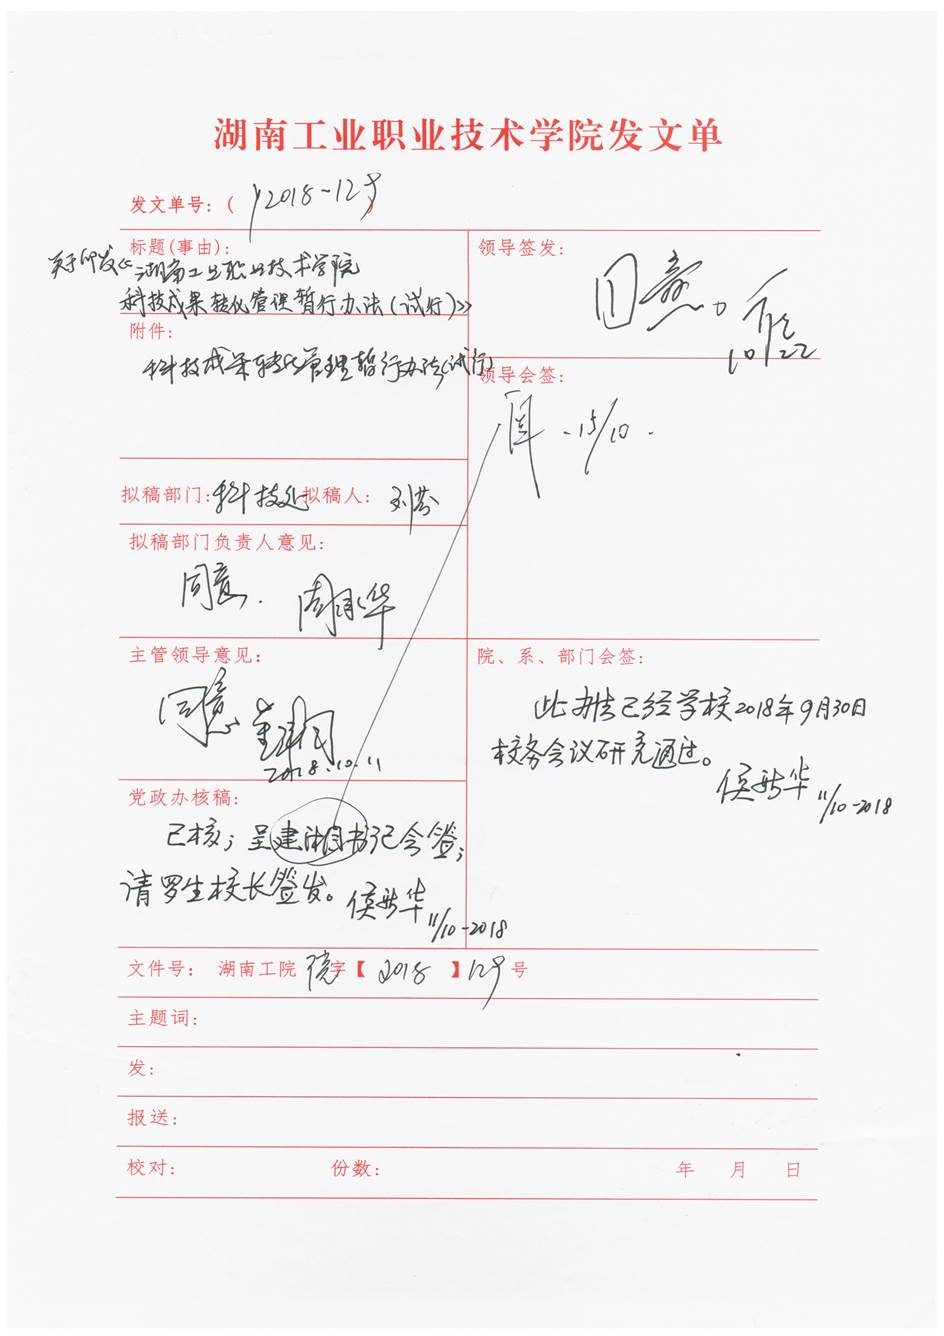 湖南工业职业技术学院发文单
发文单号：( 2018-129
标题(事由)：
关于印发《湖南工业职业技术学院
科技成果转化管理暂行办法（试行）》
领导签发：
同意。
10 22
附件：
科技成果转化管理暂行办法(试行)
领导会签：
15/10.
拟稿部门：科技处 拟稿人：刘芬
拟稿部门负责人意见：
同意.
主管领导意见：
同意
2018.10.11
院、系、部门会签：
此办法已经学校2018年9月30日
校务会议研究通过。
11/10-2018
党政办核稿：
已核；呈建湘书记会签；
请罗生校长签发。
11/10-2018
文件号： 湖南工院 院字【 2018 】129号
主题词：
发：
报送：
校对： 份数： 年 月 日